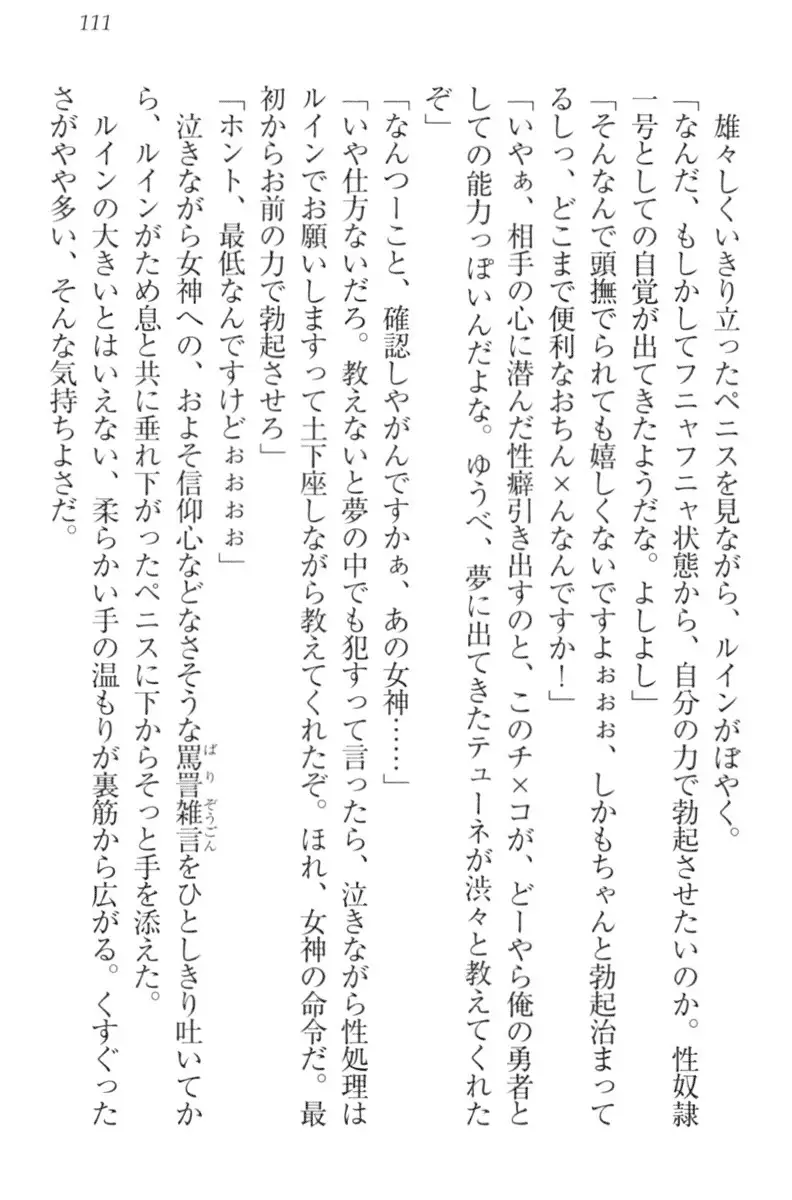 111
雄々しくいきり立ったペニスを見ながら、ルインがぼやく。
「なんだ、もしかしてフニャフニャ状態から、自分の力で勃起させたいのか。性奴隷
一号としての自覚が出てきたようだな。よしよし」
「そんなんで頭撫でられても嬉しくないですよぉぉぉ、しかもちゃんと勃起治まって
るしっ、どこまで便利なおちん×んなんですか！」
「いやぁ、相手の心に潜んだ性癖引き出すのと、このチ×コが、どーやら俺の勇者と
しての能力っぽいんだよな。ゆうべ、夢に出てきたテューネが渋々と教えてくれた
ぞ」
「なんつーこと、確認しやがんですかぁ、あの女神……」
「いや仕方ないだろ。教えないと夢の中でも犯すって言ったら、泣きながら性処理は
ルインでお願いしますって土下座しながら教えてくれたぞ。ほれ、女神の命令だ。最
初からお前の力で勃起させろ」
「ホント、最低なんですけどぉぉぉぉ」
泣きながら女神への、およそ信仰心などなさそうな罵詈雑言をひとしきり吐いてか
ら、ルインがため息と共に垂れ下がったペニスに下からそっと手を添えた。
ルインの大きいとはいえない、柔らかい手の温もりが裏筋から広がる。くすぐった
さがやや多い、そんな気持ちよさだ。